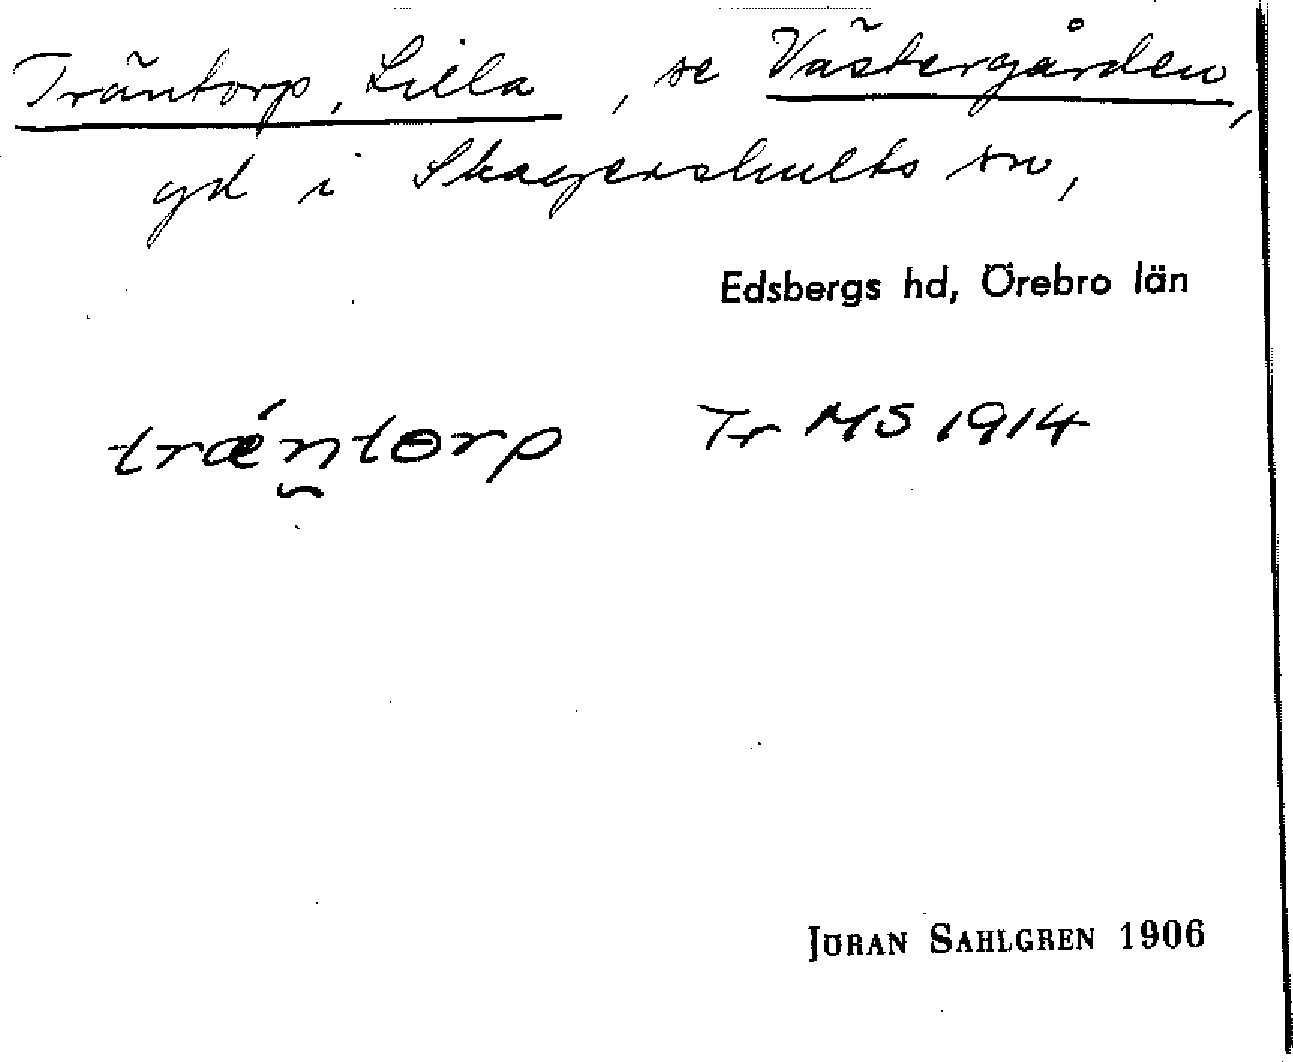 Träntorp, Lilla, se Västergården,
gd i Skagershults sn,
Edsbergs hd, Örebro län
træ´n̯torp Tr MS 1914
JÖRAN SAHLGREN 1906